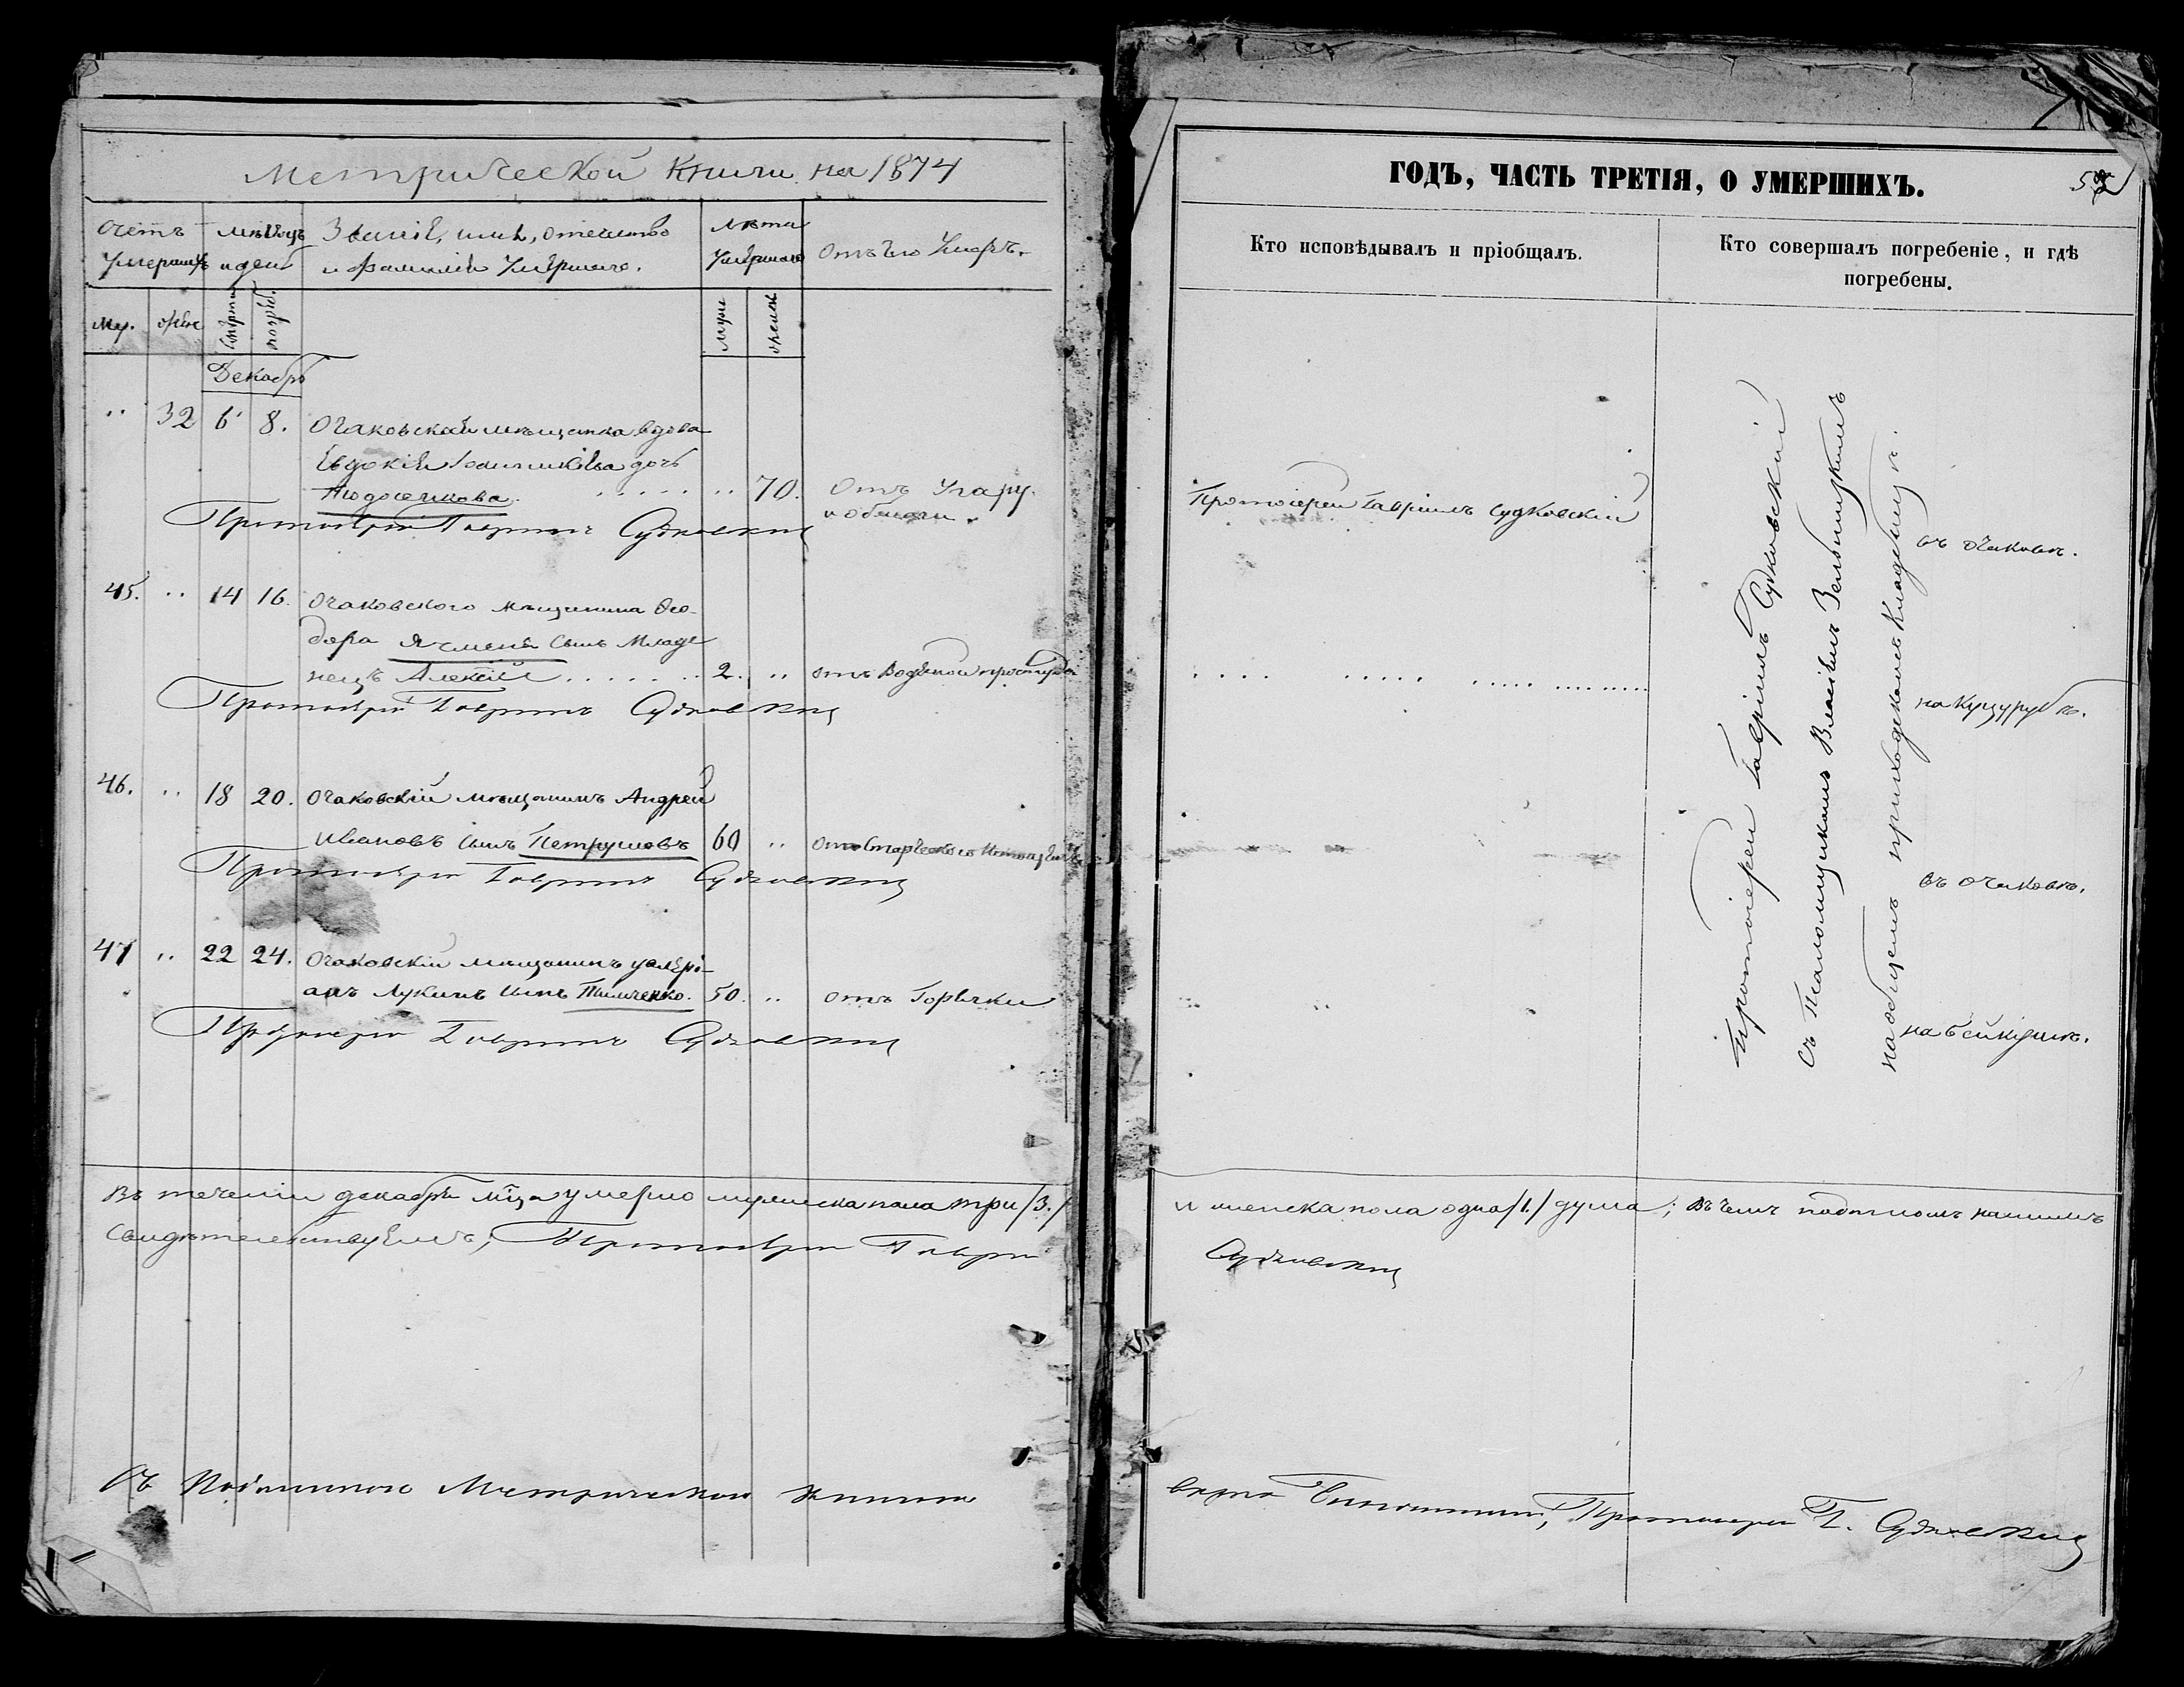 Метрической Книги на 1874
Счетъ умершихъ
Мѣсяцъ и день
Званіе, имя, отечество и фамилія умершаго.
Лѣта умершаго
Отъ чего умеръ.
Муж.
Жен
смерти
погреб.
муж
женск
Декабрь
" 32 6 8. Очаковская мѣщанка вдова
Евдокія дочь
70. Отъ угару
Протоіерей Гавріилъ Судковскій
45. " 14 16. Очаковского мѣщанина Ѳео-
дора Ячменя сынъ Младе
нецъ Алексій 2. " отъ Водяной простуды
Протоіерей Гавріилъ Судковскій
46. " 18 20. Очаковскій мѣщанинъ Андрей
Ивановъ сынъ Петрушовъ 60 " отъ Старческого
Протоіерей Гавріилъ Судковскій
47 " 22 24. Очаковскій мѣщанинъ
Лукинъ сынъ Тимченко. 50. " отъ Горячки
Протоіерей Гавріилъ Судковскій
Въ теченіи декабря мца умерло мужеска пола три /3./
свидѣтельствуемъ, Протоіерей Гавріилъ
Съ подлинною Метрическою книгою
ГОДЪ, ЧАСТЬ ТРЕТІЯ, О УМЕРШИХЪ.
Кто исповѣдывалъ и пріобщалъ.
Кто совершалъ погребеніе, и гдѣ
погребены.
Протоіерей Гавріилъ Судковскій
Протоіерей Гавріилъ Судковскій
съ Псаломщикомъ Власіемъ Зельницкимъ
на общемъ приходскомъ Кладбищѣ.
въ Очаковѣ.
на Куцурубѣ.
въ Очаковѣ.
на Бейкушѣ.
и женска пола одна /1./ душа; въ чемъ подписомъ нашимъ
Судковскій
вѣрно Протоіерей Г. Судковскій